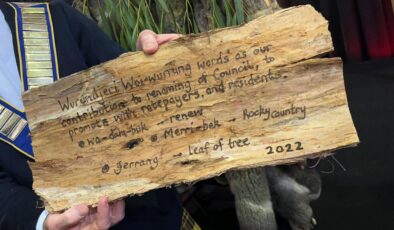 Wurundjeri Woi-wurrung words as our
contribution to renaming of Council, to
promote with ratepayers, and residents.
@ wa-dam-buk → renew
@ Merri-bek → Rocky country
@ jerrang → Leaf of tree
2022